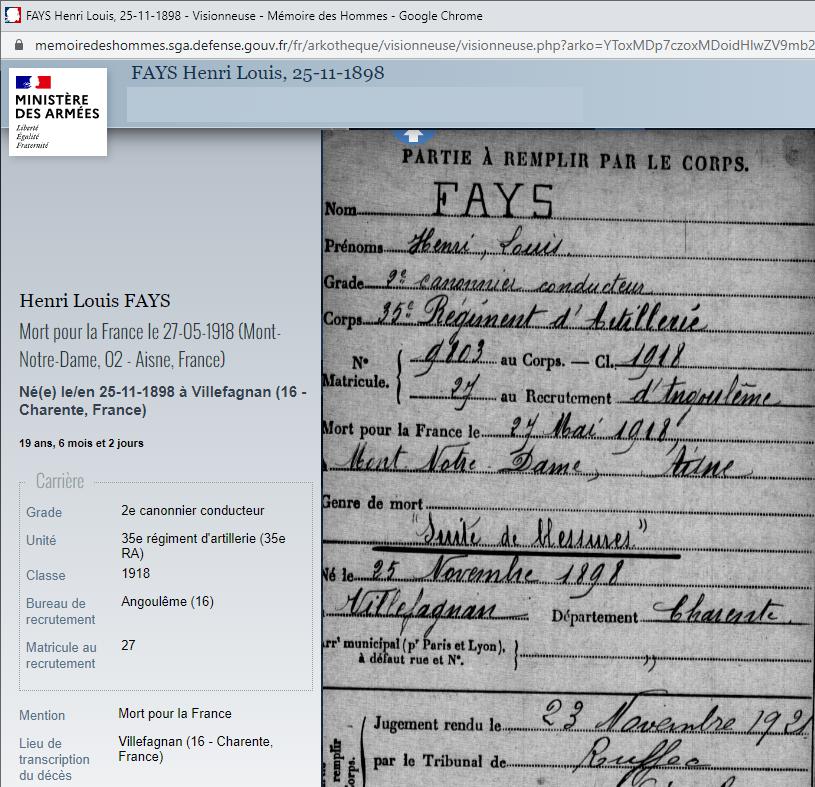 FAYS Henri Louis, 25-11-1898 - Visionneuse - Mémoire des Hommes - Google Chrome
memoiredeshommes.sga.defense.gouv.fr/fr/arkotheque/visionneuse/visionneuse.php?arko=YToxMDp7czoxMDoidHlwZV9mb2
FAYS Henri Louis, 25-11-1898
MINISTÈRE
DES ARMÉES
Liberté
Égalité
Fraternité
Henri Louis FAYS
Mort pour la France le 27-05-1918 (Mont-
Notre-Dame, 02 - Aisne, France)
Né(e) le/en 25-11-1898 à Villefagnan (16 -
Charente, France)
19 ans, 6 mois et 2 jours
Carrière
Grade 2e canonnier conducteur
Unité 35e régiment d'artillerie (35e
RA)
Classe 1918
Bureau de
recrutement Angoulême (16)
Matricule au
recrutement 27
Mention Mort pour la France
Lieu de
transcription
du décès Villefagnan (16 - Charente,
France)
PARTIE À REMPLIR PAR LE CORPS.
Nom FAYS
Prénoms Henri, Louis.
Grade 2e canonnier conducteur
Corps 35e Régiment d'Artillerie
No
Matricule.
9803 au Corps. — Cl. 1918
27 au Recrutement d'Angoulême
Mort pour la France le 27 Mai 1918
Mont Notre-Dame, Aisne
Genre de mort
"Suite de blessures"
Né le 25 Novembre 1898
Villefagnan Département Charente.
Arrt municipal (pr Paris et Lyon),
à défaut rue et No.
Jugement rendu le 23 Novembre 1921
par le Tribunal de Ruffec
remplir
Corps.